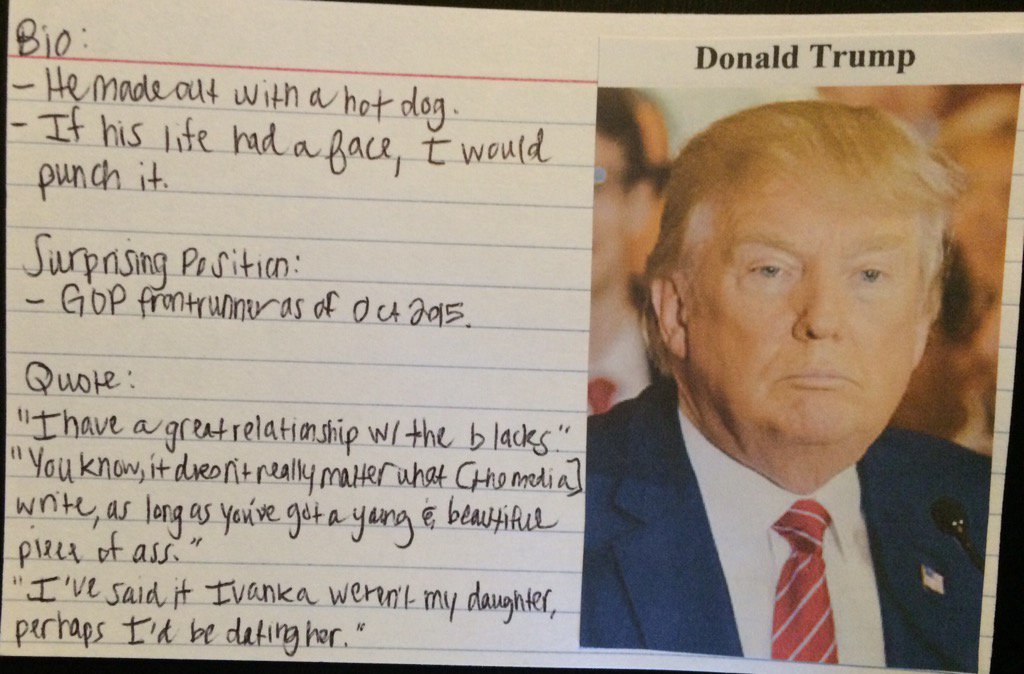 Bio:
- He made out with a hot dog.
- If his life had a face, I would
punch it.
Surprising Position:
- GOP frontrunner as of Oct 2015.
Quote:
"I have a great relationship w/ the blacks."
"You know, it doesn't really matter what [the media]
write, as long as you've got a young & beautiful
piece of ass."
"I've said if Ivanka weren't my daughter,
perhaps I'd be dating her."
Donald Trump